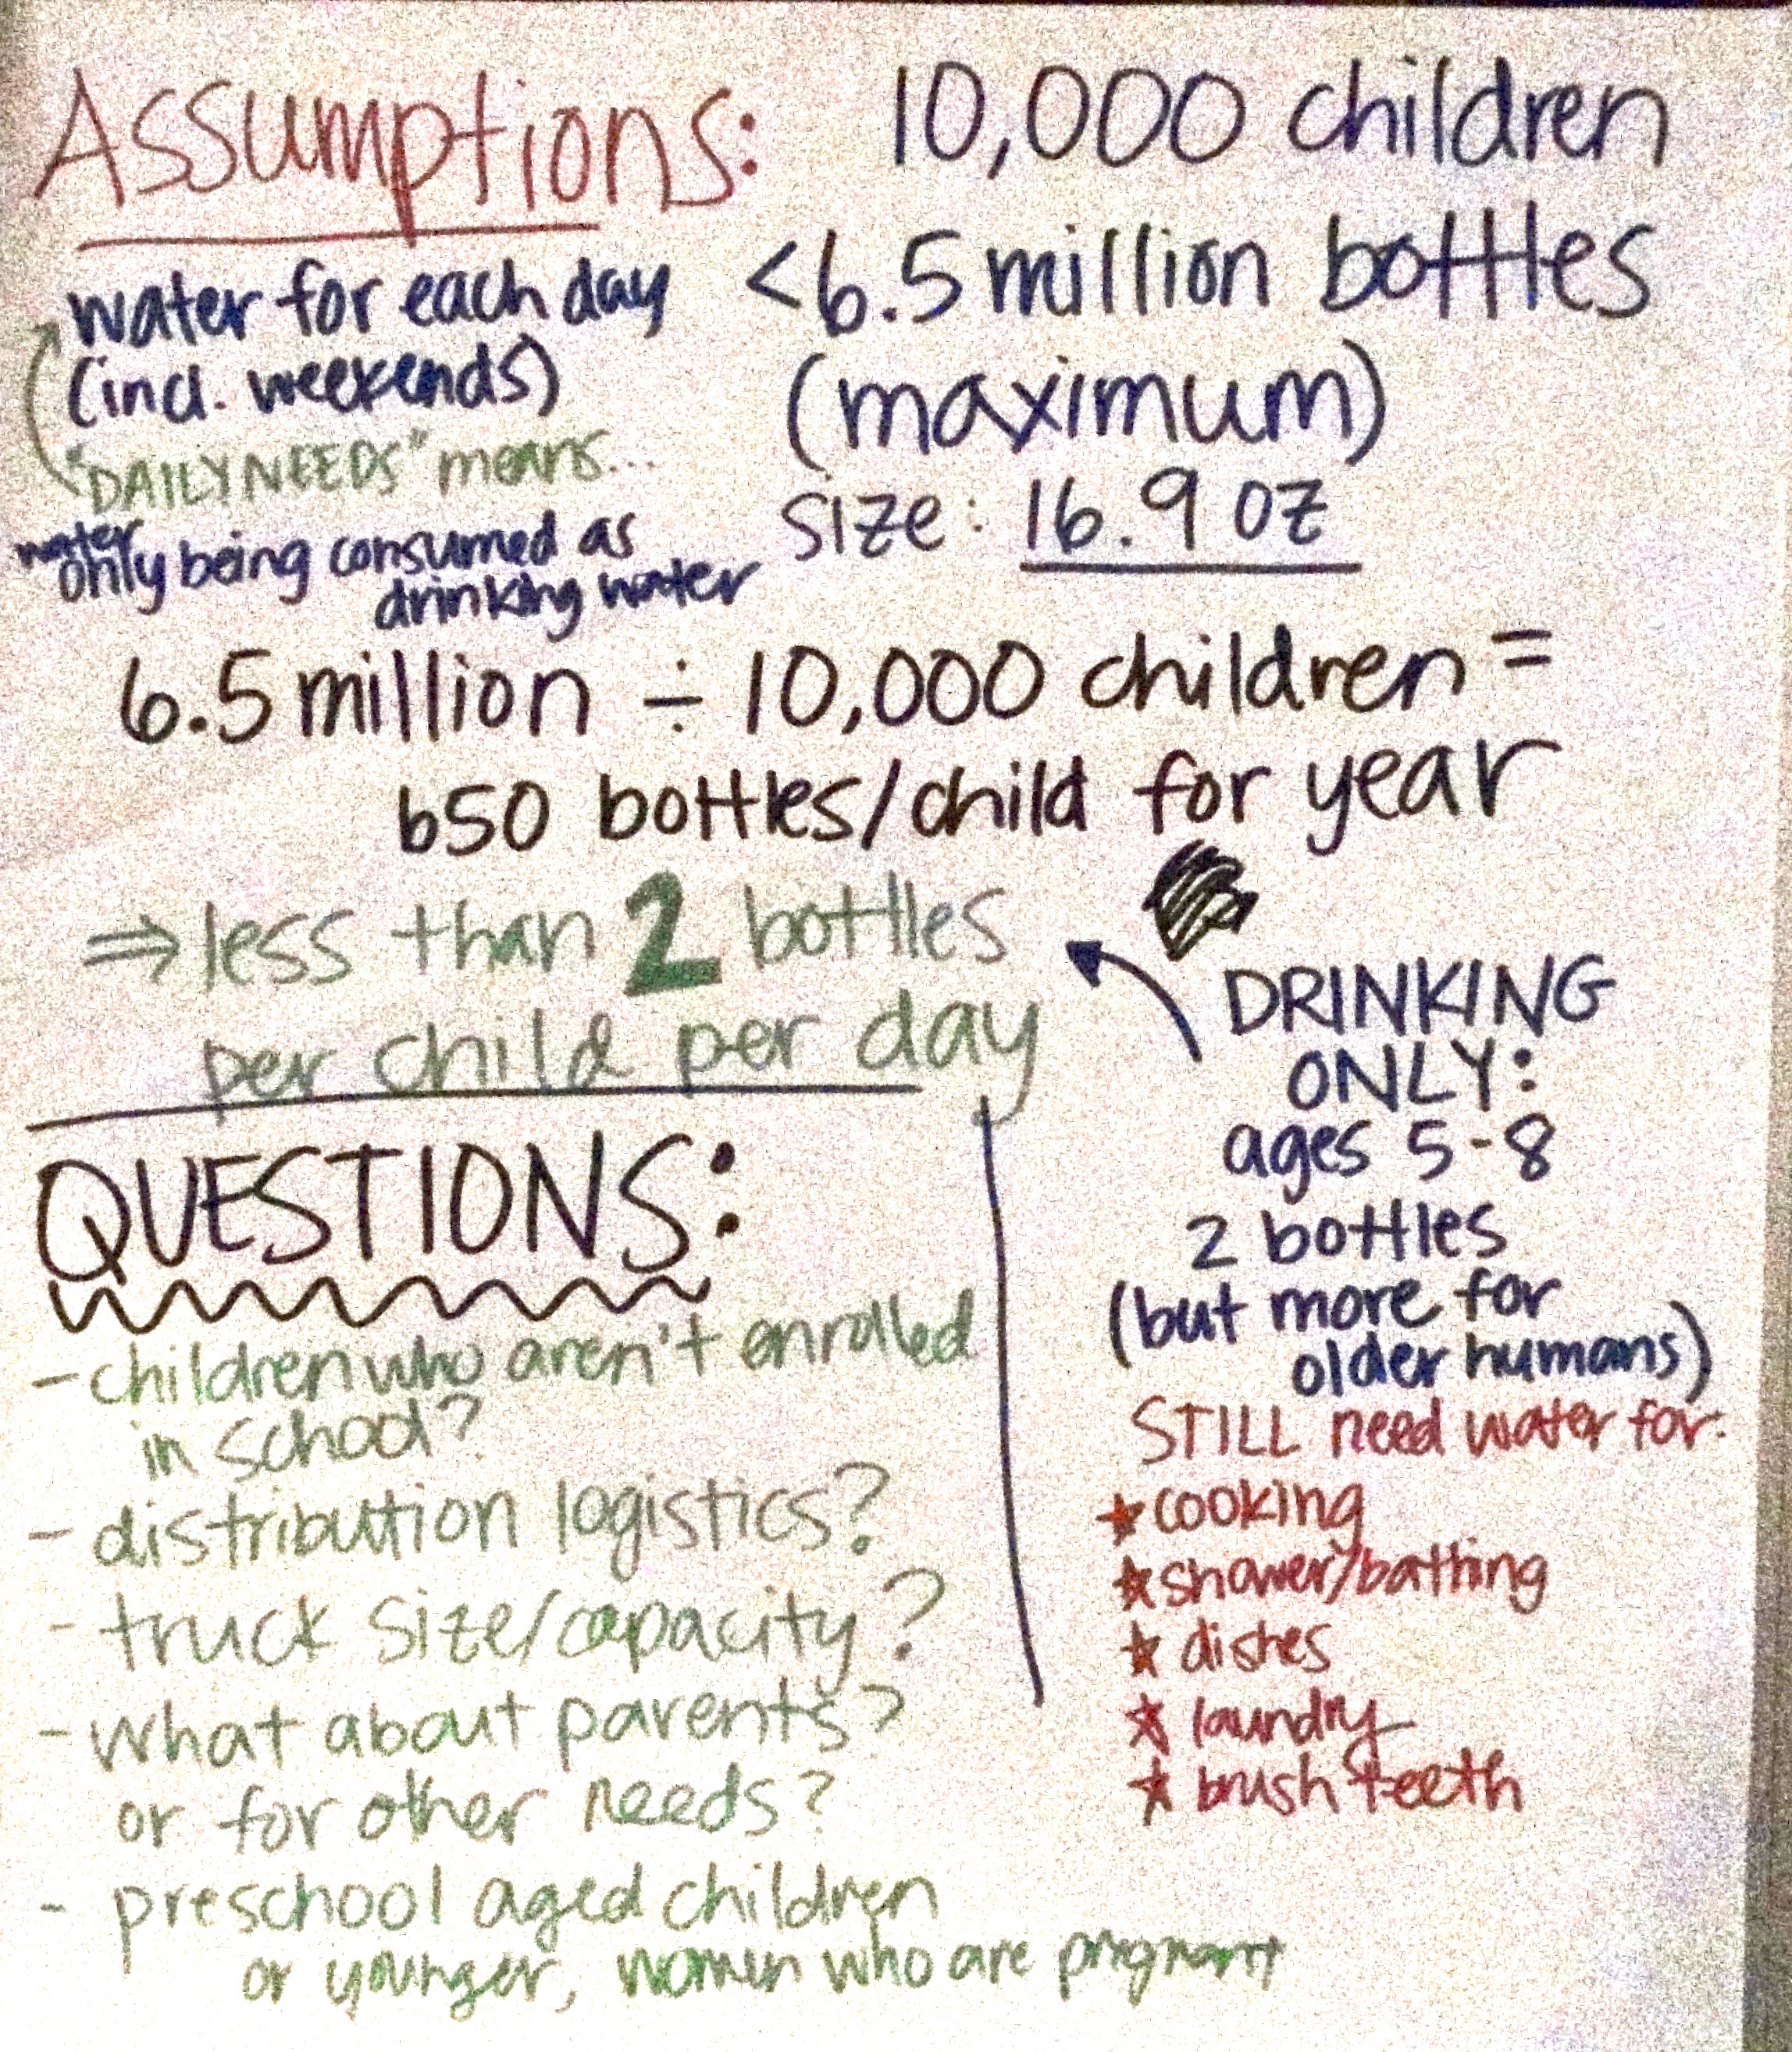 Assumptions:
water for each day
(incl. weekends)
"DAILY NEEDS" means...
water
only being consumed as
drinking water
10,000 children
<6.5 million bottles
(maximum)
size: 16.9 oz
6.5 million ÷ 10,000 children =
650 bottles/child for year
⇒ less than 2 bottles
per child per day
DRINKING
ONLY:
ages 5-8
2 bottles
(but more for
older humans)
STILL need water for:
★ cooking
★ shower/bathing
★ dishes
★ laundry
★ brush teeth
QUESTIONS:
- children who aren't enrolled
in school?
- distribution logistics?
- truck size/capacity?
- what about parents?
or for other needs?
- preschool aged children
or younger, women who are pregnant